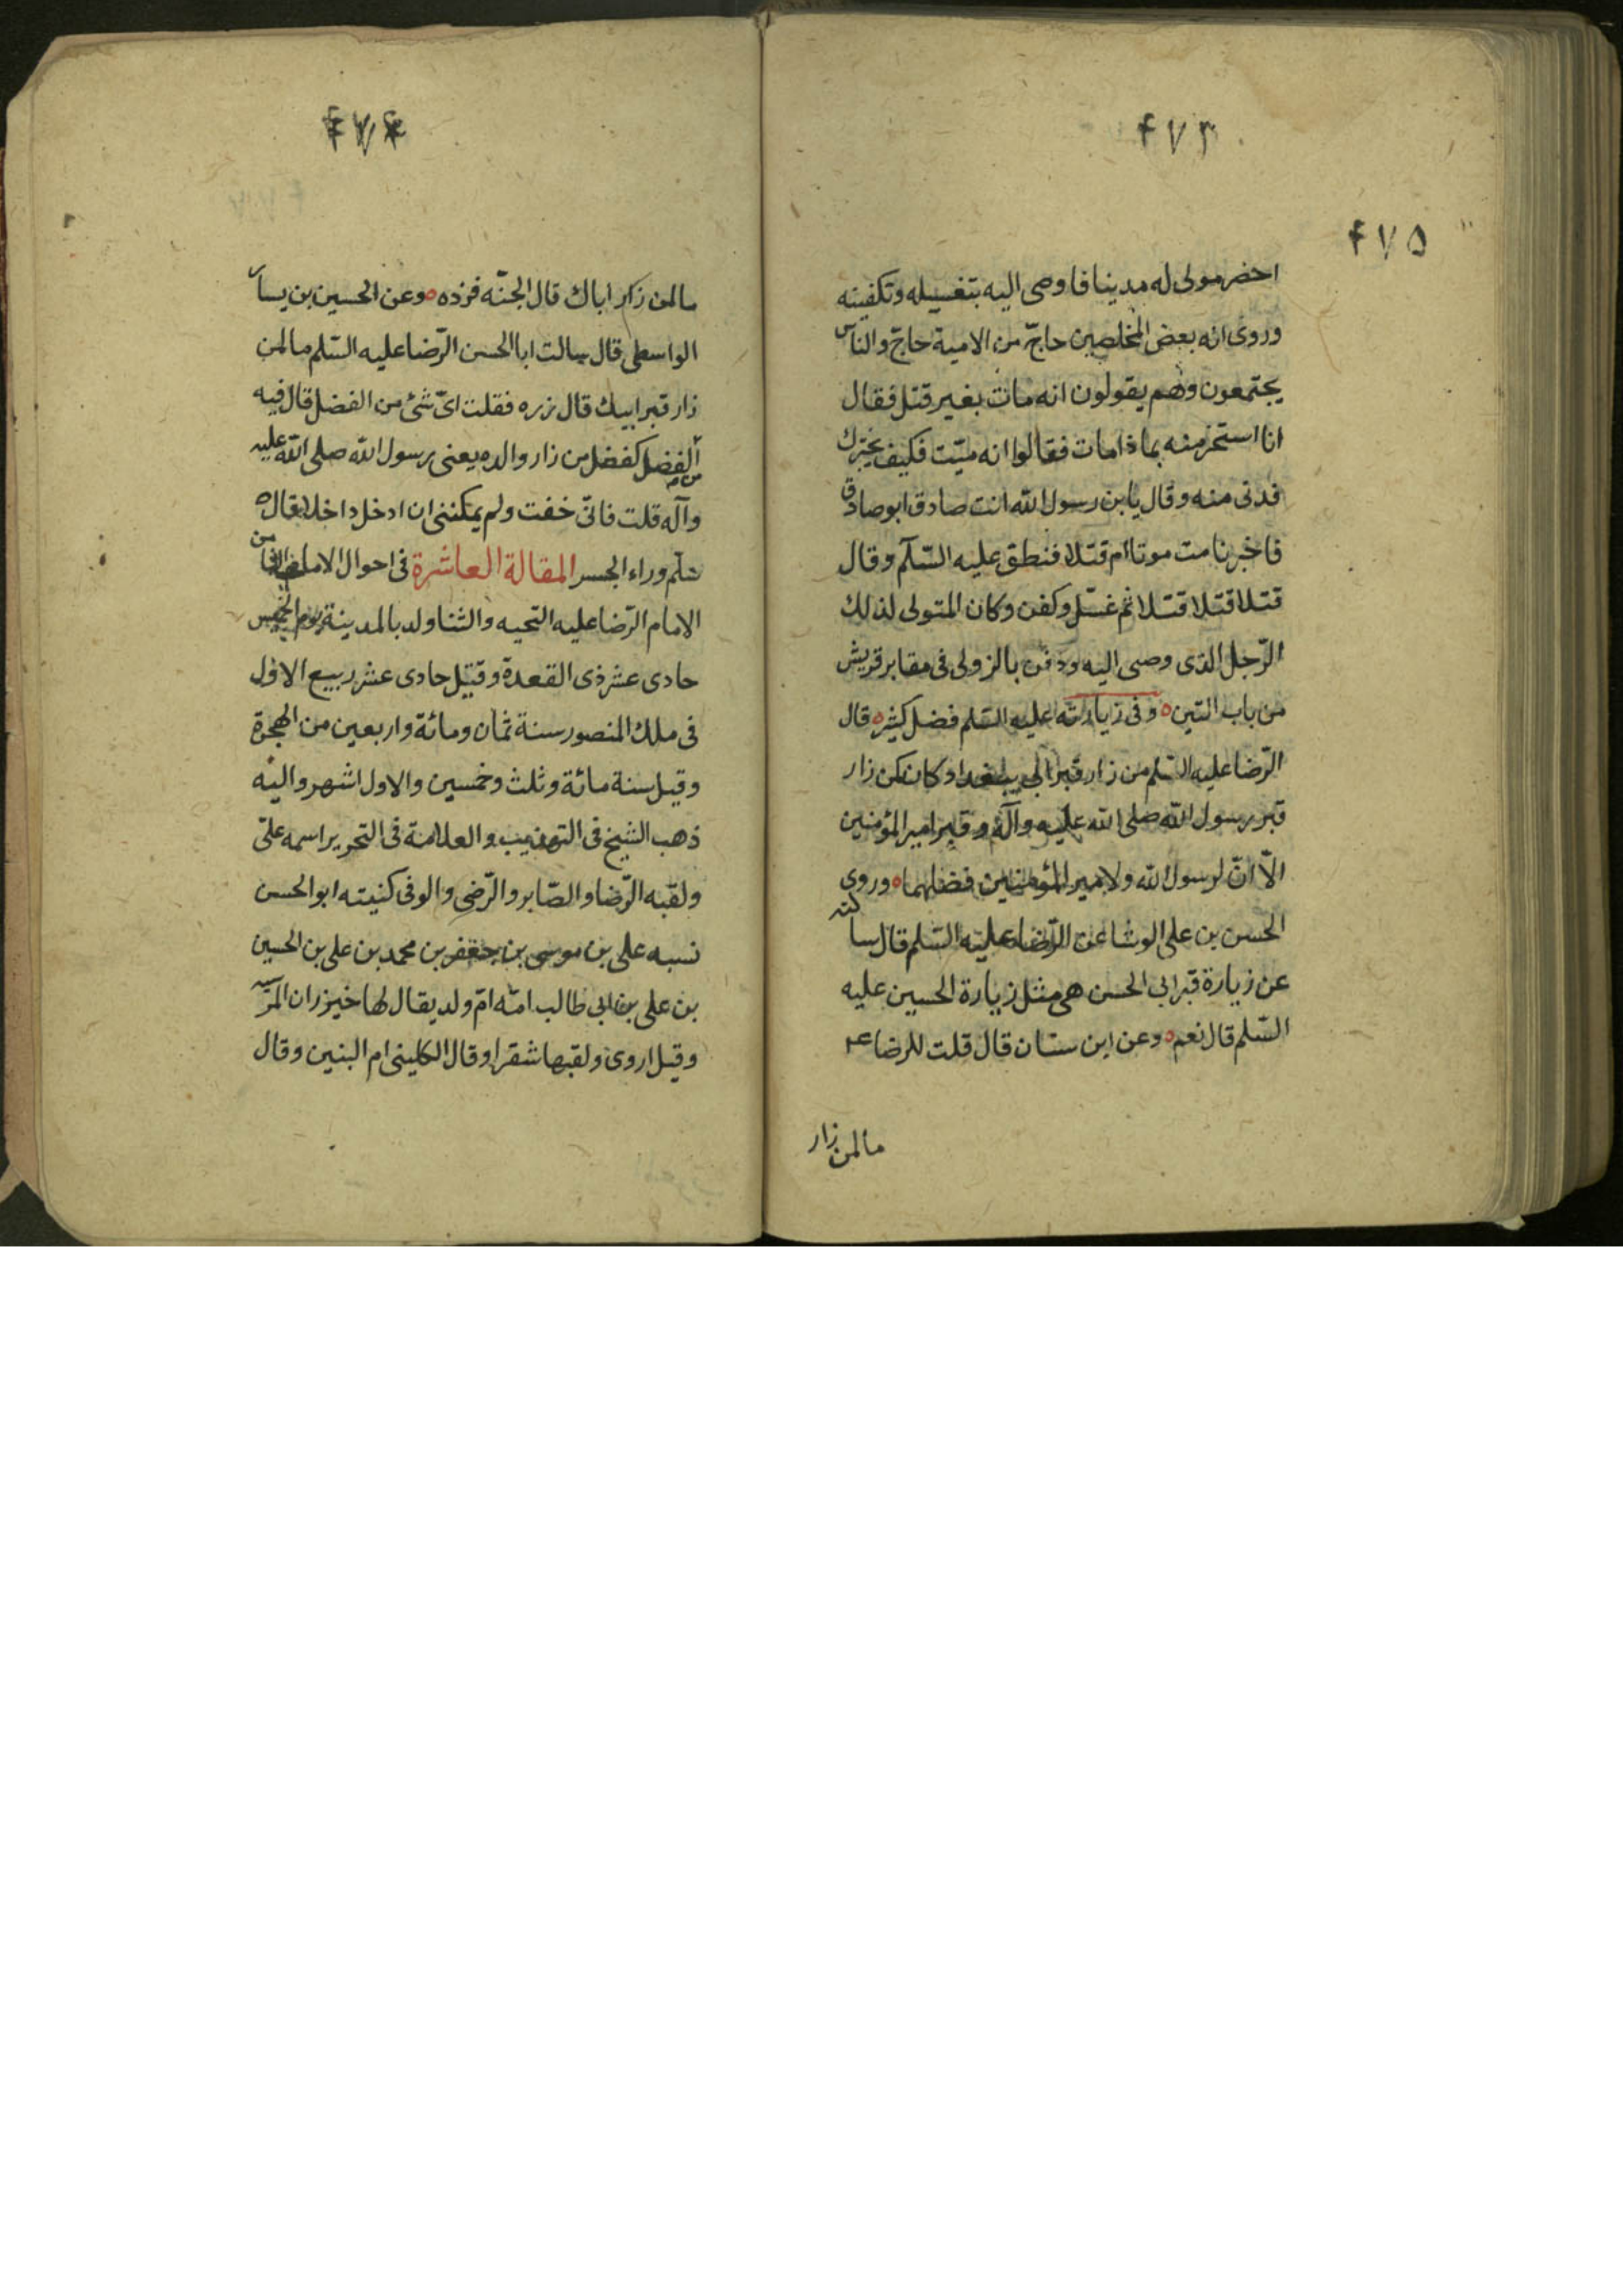 ۴۷۳
۴۷۵
احضر مولى له مدينا فاوصى اليه بتغسيله وتكفينه
وروى انه بعض المخلصين حاجّ من الامية حاجّ والناس
يجتمعون وهم يقولون انه مات بغير قتل فقال
انا استخبر منه بماذا مات فقالوا انه ميّت فكيف يخبرك
فدنى منه وقال يا بن رسول الله انت صادق ابو صادق
فاخبرنا مت موتا ام قتلا فنطق عليه السّلم وقال
قتلا قتلا قتلا ثم غسّل وكفن وكان المتولى لذلك
الرّجل الذى وصى اليه ودفن بالزولى فى مقابر قريش
من باب التين ه وفى زيارته عليه السّلم فضل كثير ه قال
الرّضا عليه السّلم من زار قبر ابى ببغداد كان كمن زار
قبر رسول الله صلى الله عليه وآله وقبر امير المؤمنين
الّا انّ لرسول الله ولامير المؤمنين فضلهما ه وروى
الحسن بن على الوشا عن الرّضا عليه السّلم قال سالته
عن زيارة قبر ابى الحسن هى مثل زيارة الحسين عليه
السّلم قال نعم ه وعن ابن سنان قال قلت للرضا ع
مالمن زار
۴۷۴
مالمن زار اباك قال الجنّه فزده ه وعن الحسين بن يسار
الواسطى قال سالت ابا الحسن الرّضا عليه السّلم مالمن
زار قبر ابيك قال زره فقلت اىّ شئ من الفضل قال فيه
من الفضل كفضل من زار والده يعنى رسول الله صلى الله عليه
وآله قلت فانّى خفت ولم يمكننى ان ادخل داخلا قال
سلّم وراء الجسر المقالة العاشرة فى احوال الامام الثامن
الامام الرّضا عليه التحيه والثنا ولد بالمدينة يوم الخميس
حادى عشر ذى القعدة وقيل حادى عشر ربيع الاول
فى ملك المنصور سنة ثمان ومائة واربعين من الهجرة
وقيل سنة مائة وثلث وخمسين والاول اشهر واليه
ذهب الشيخ فى التهذيب والعلامة فى التحرير اسمه علىّ
ولقبه الرّضا والصّابر والرّضى والوفى كنيته ابو الحسن
نسبه على بن موسى بن جعفر بن محمد بن على بن الحسين
بن على بن ابى طالب امّه امّ ولد يقال لها خيزران المرسيه
وقيل اروى ولقبها شقرا وقال الكلينى ام البنين وقال